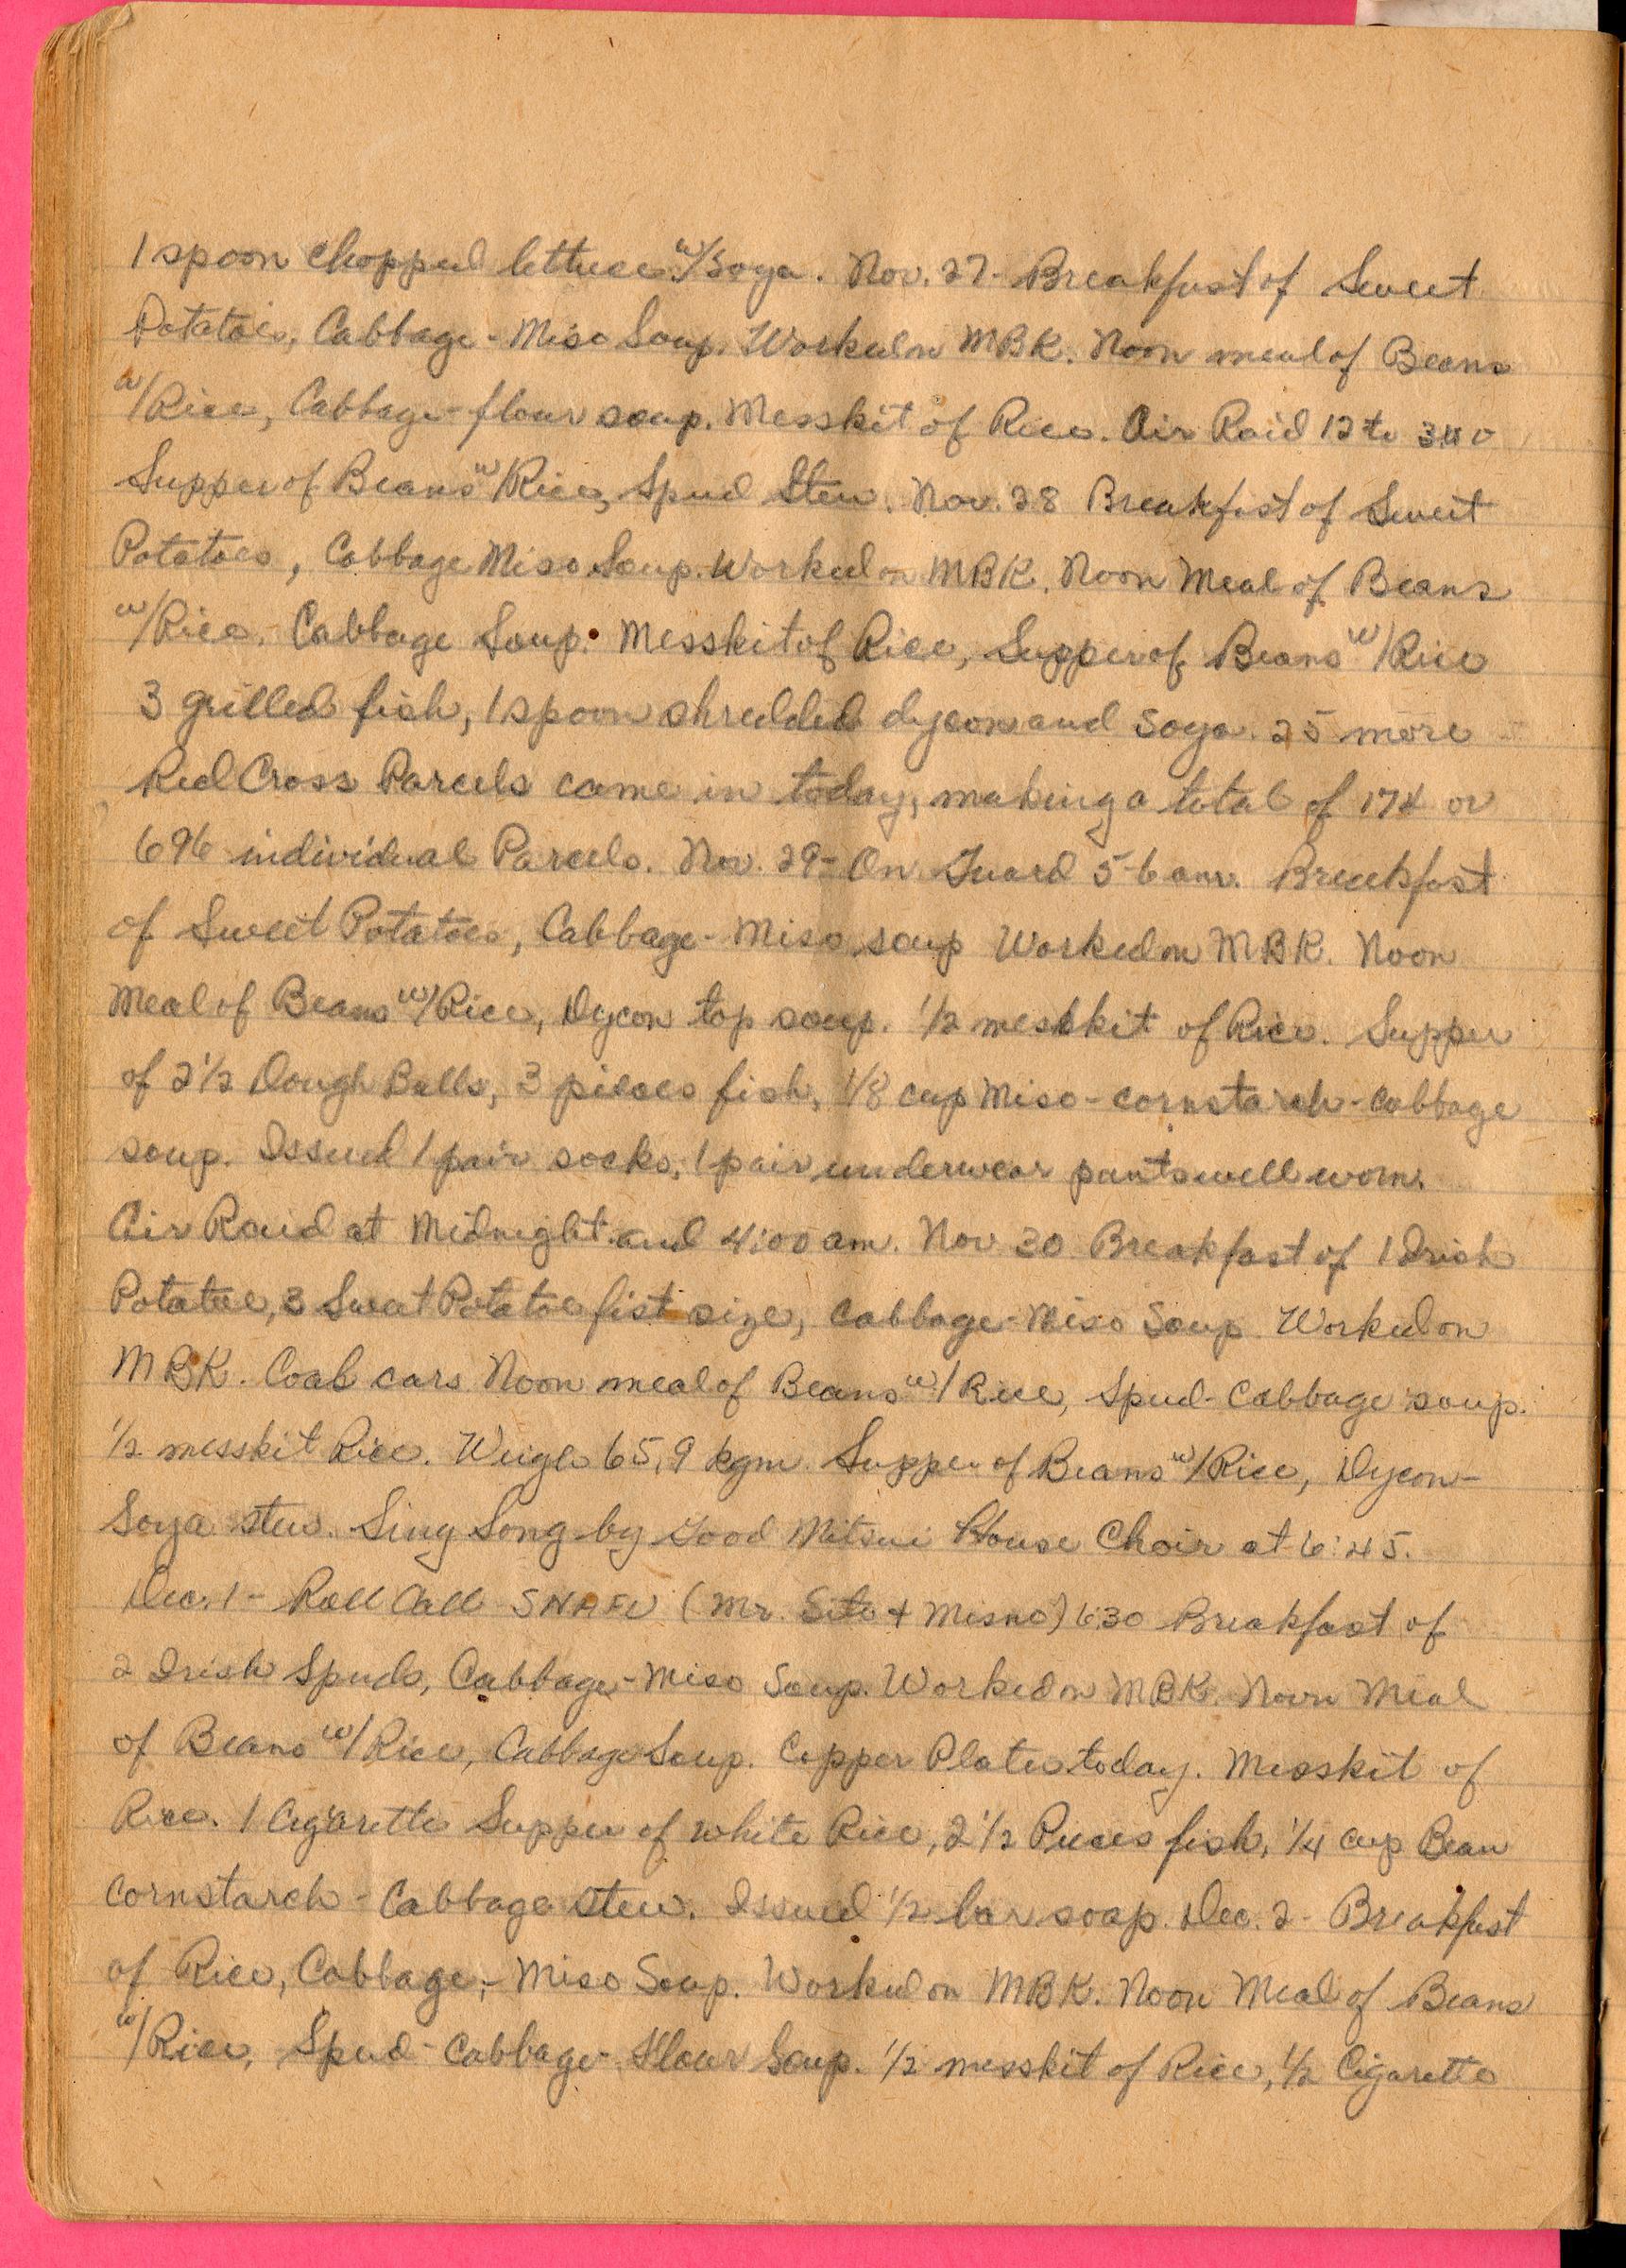 1 spoon chopped lettuce w/soya. Nov. 27- Breakfast of Sweet
Potatoes, Cabbage-Miso Soup. Worked on MBK. Noon meal of Beans
w/Rice, Cabbage-flour soup. Messkit of Rice. Air Raid 12 to
Supper of Beans w/Rice, Spud Stew. Nov. 28 Breakfast of Sweet
Potatoes, Cabbage Miso Soup. Worked on MBK. Noon Meal of Beans
w/Rice. Cabbage Soup. Messkit of Rice, Supper of Beans w/Rice
3 grilled fish, 1 spoon shredded dycon and soya. 25 more
Red Cross Parcels came in today, making a total of 174 or
696 individual Parcels. Nov. 29- On Guard 5-6 am. Breakfast
of Sweet Potatoes, Cabbage-Miso soup Worked on MBK. Noon
Meal of Beans w/Rice, Dycon top soup. 1/2 messkit of Rice. Supper
of 2 1/2 Dough Balls, 3 pieces fish, 1/8 cup Miso-cornstarch-cabbage
soup. Issued 1 pair socks, 1 pair underwear pants well worn.
Air Raid at Midnight and 4:00 am. Nov 30 Breakfast of 1 Irish
Potatoe, 3 Sweet Potatoe fist size, Cabbage-Miso Soup. Worked on
MBK. Coal cars Noon meal of Beans w/Rice, Spud-Cabbage soup.
1/2 messkit Rice. Weigh 65.9 kgm. Supper of Beans w/Rice, Dycon-
Soya stew. Sing Song by Good Mitsui House Choir at 6:45.
Dec. 1- Roll Call SNAFU (Mr. Sito + Misno) 6:30 Breakfast of
2 Irish Spuds, Cabbage-Miso Soup. Worked on MBK. Noon Meal
of Beans w/Rice, Cabbage Soup. Copper Plates today. Messkit of
Rice. 1 Cigarette Supper of white Rice, 2 1/2 Pieces fish, 1/4 cup Bean
Cornstarch-Cabbage stew. Issued 1/2 bar soap. Dec. 2- Breakfast
of Rice, Cabbage,-Miso Soup. Worked on MBK. Noon Meal of Beans
w/Rice, Spud-Cabbage-Flour Soup. 1/2 messkit of Rice, 1/2 Cigarette